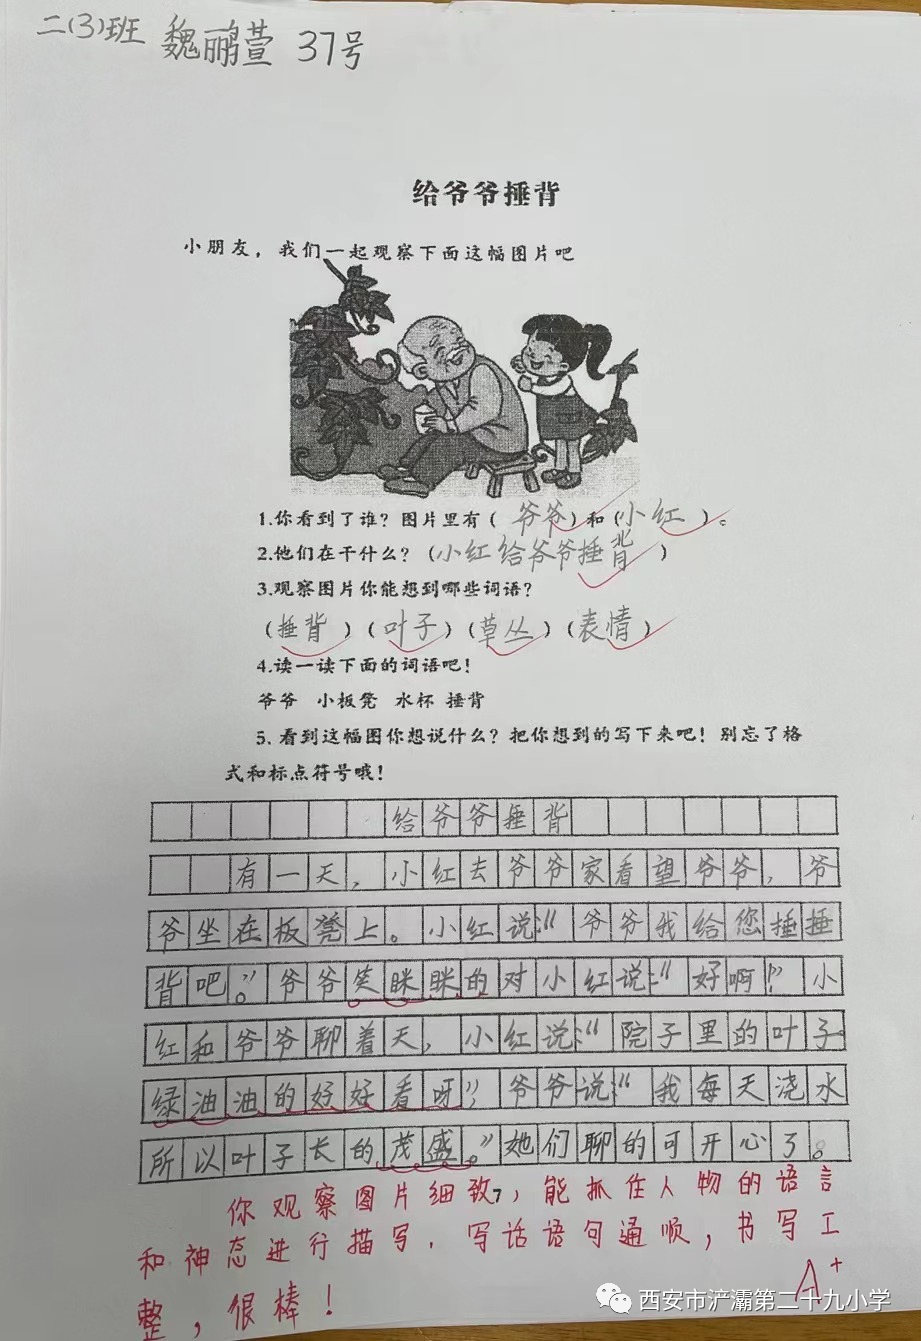 二(3)班 魏丽萱 37号
给爷爷捶背
小朋友，我们一起观察下面这幅图片吧
1.你看到了谁？图片里有（爷爷）和（小红）。
2.他们在干什么？（小红给爷爷捶背）
3.观察图片你能想到哪些词语？
（捶背）（叶子）（草丛）（表情）
4.读一读下面的词语吧！
爷爷 小板凳 水杯 捶背
5.看到这幅图你想说什么？把你想到的写下来吧！别忘了格
式和标点符号哦！
给爷爷捶背
有一天，小红去爷爷家看望爷爷，爷
爷坐在板凳上。小红说：“爷爷我给您捶捶
背吧。”爷爷笑眯眯的对小红说：“好啊！”小
红和爷爷聊着天，小红说：“院子里的叶子
绿油油的好好看呀”，爷爷说：“我每天浇水
所以叶子长的茂盛。”她们聊的可开心了。
你观察图片细致，能抓住人物的语言
和神态进行描写，写话语句通顺，书写工
整，很棒！
A+
7
西安市浐灞第二十九小学